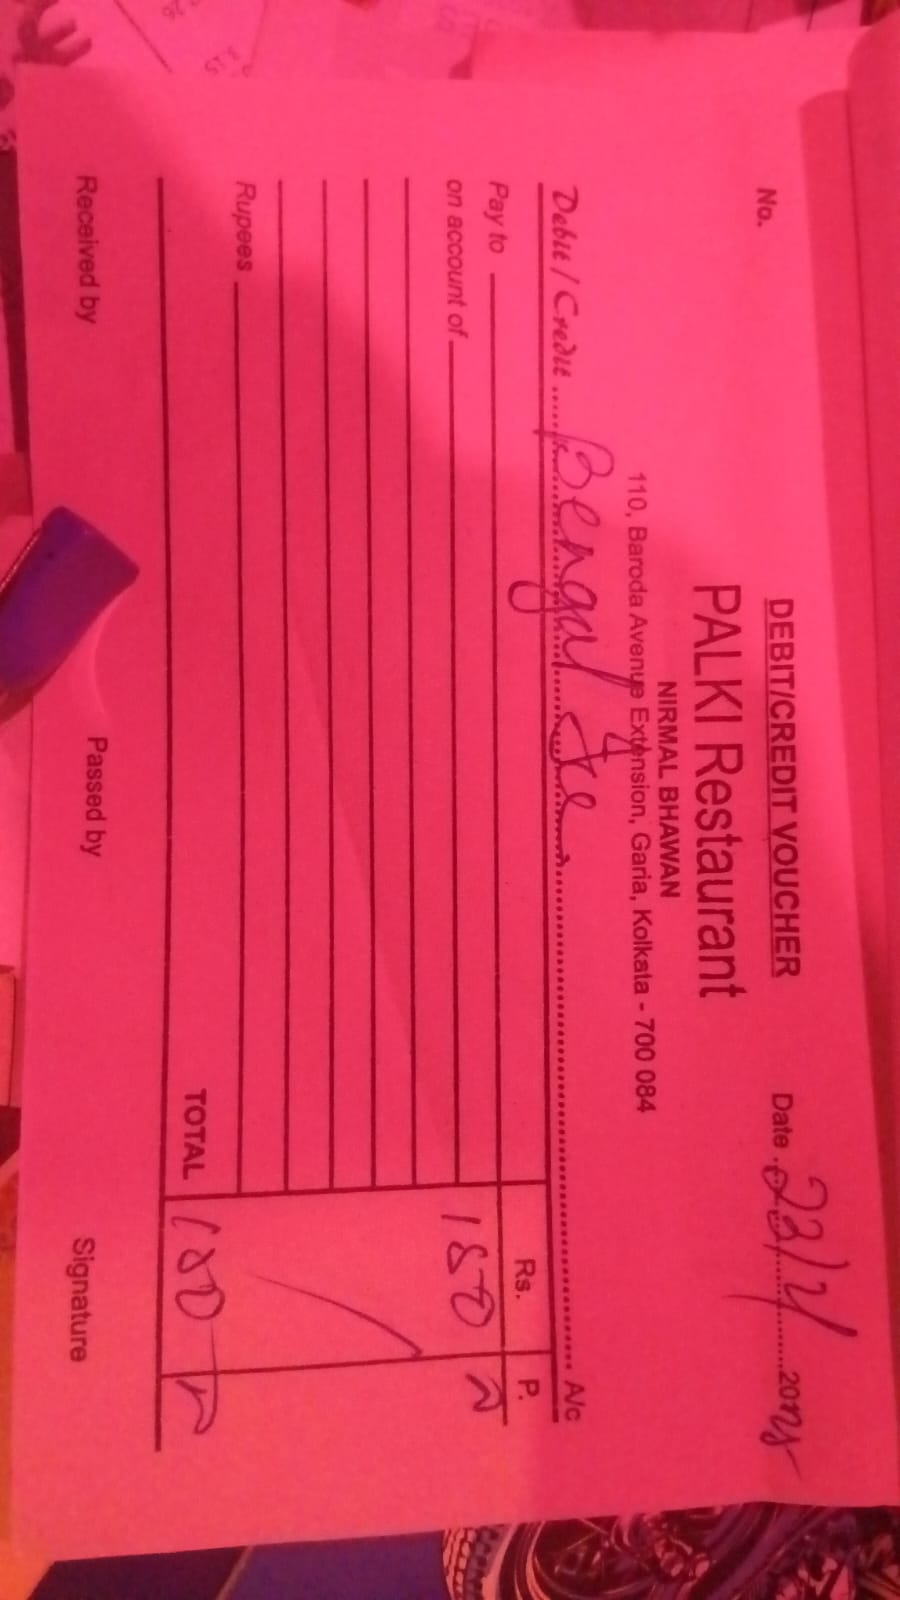 DEBIT/CREDIT VOUCHER
No. Date 23/4 2025
PALKI Restaurant
NIRMAL BHAWAN
110, Baroda Avenue Extension, Garia, Kolkata - 700 084
Debit / Credit Bengal Ice A/c
Rs. P.
Pay to 180
on account of
Rupees
TOTAL 180
Received by Passed by Signature